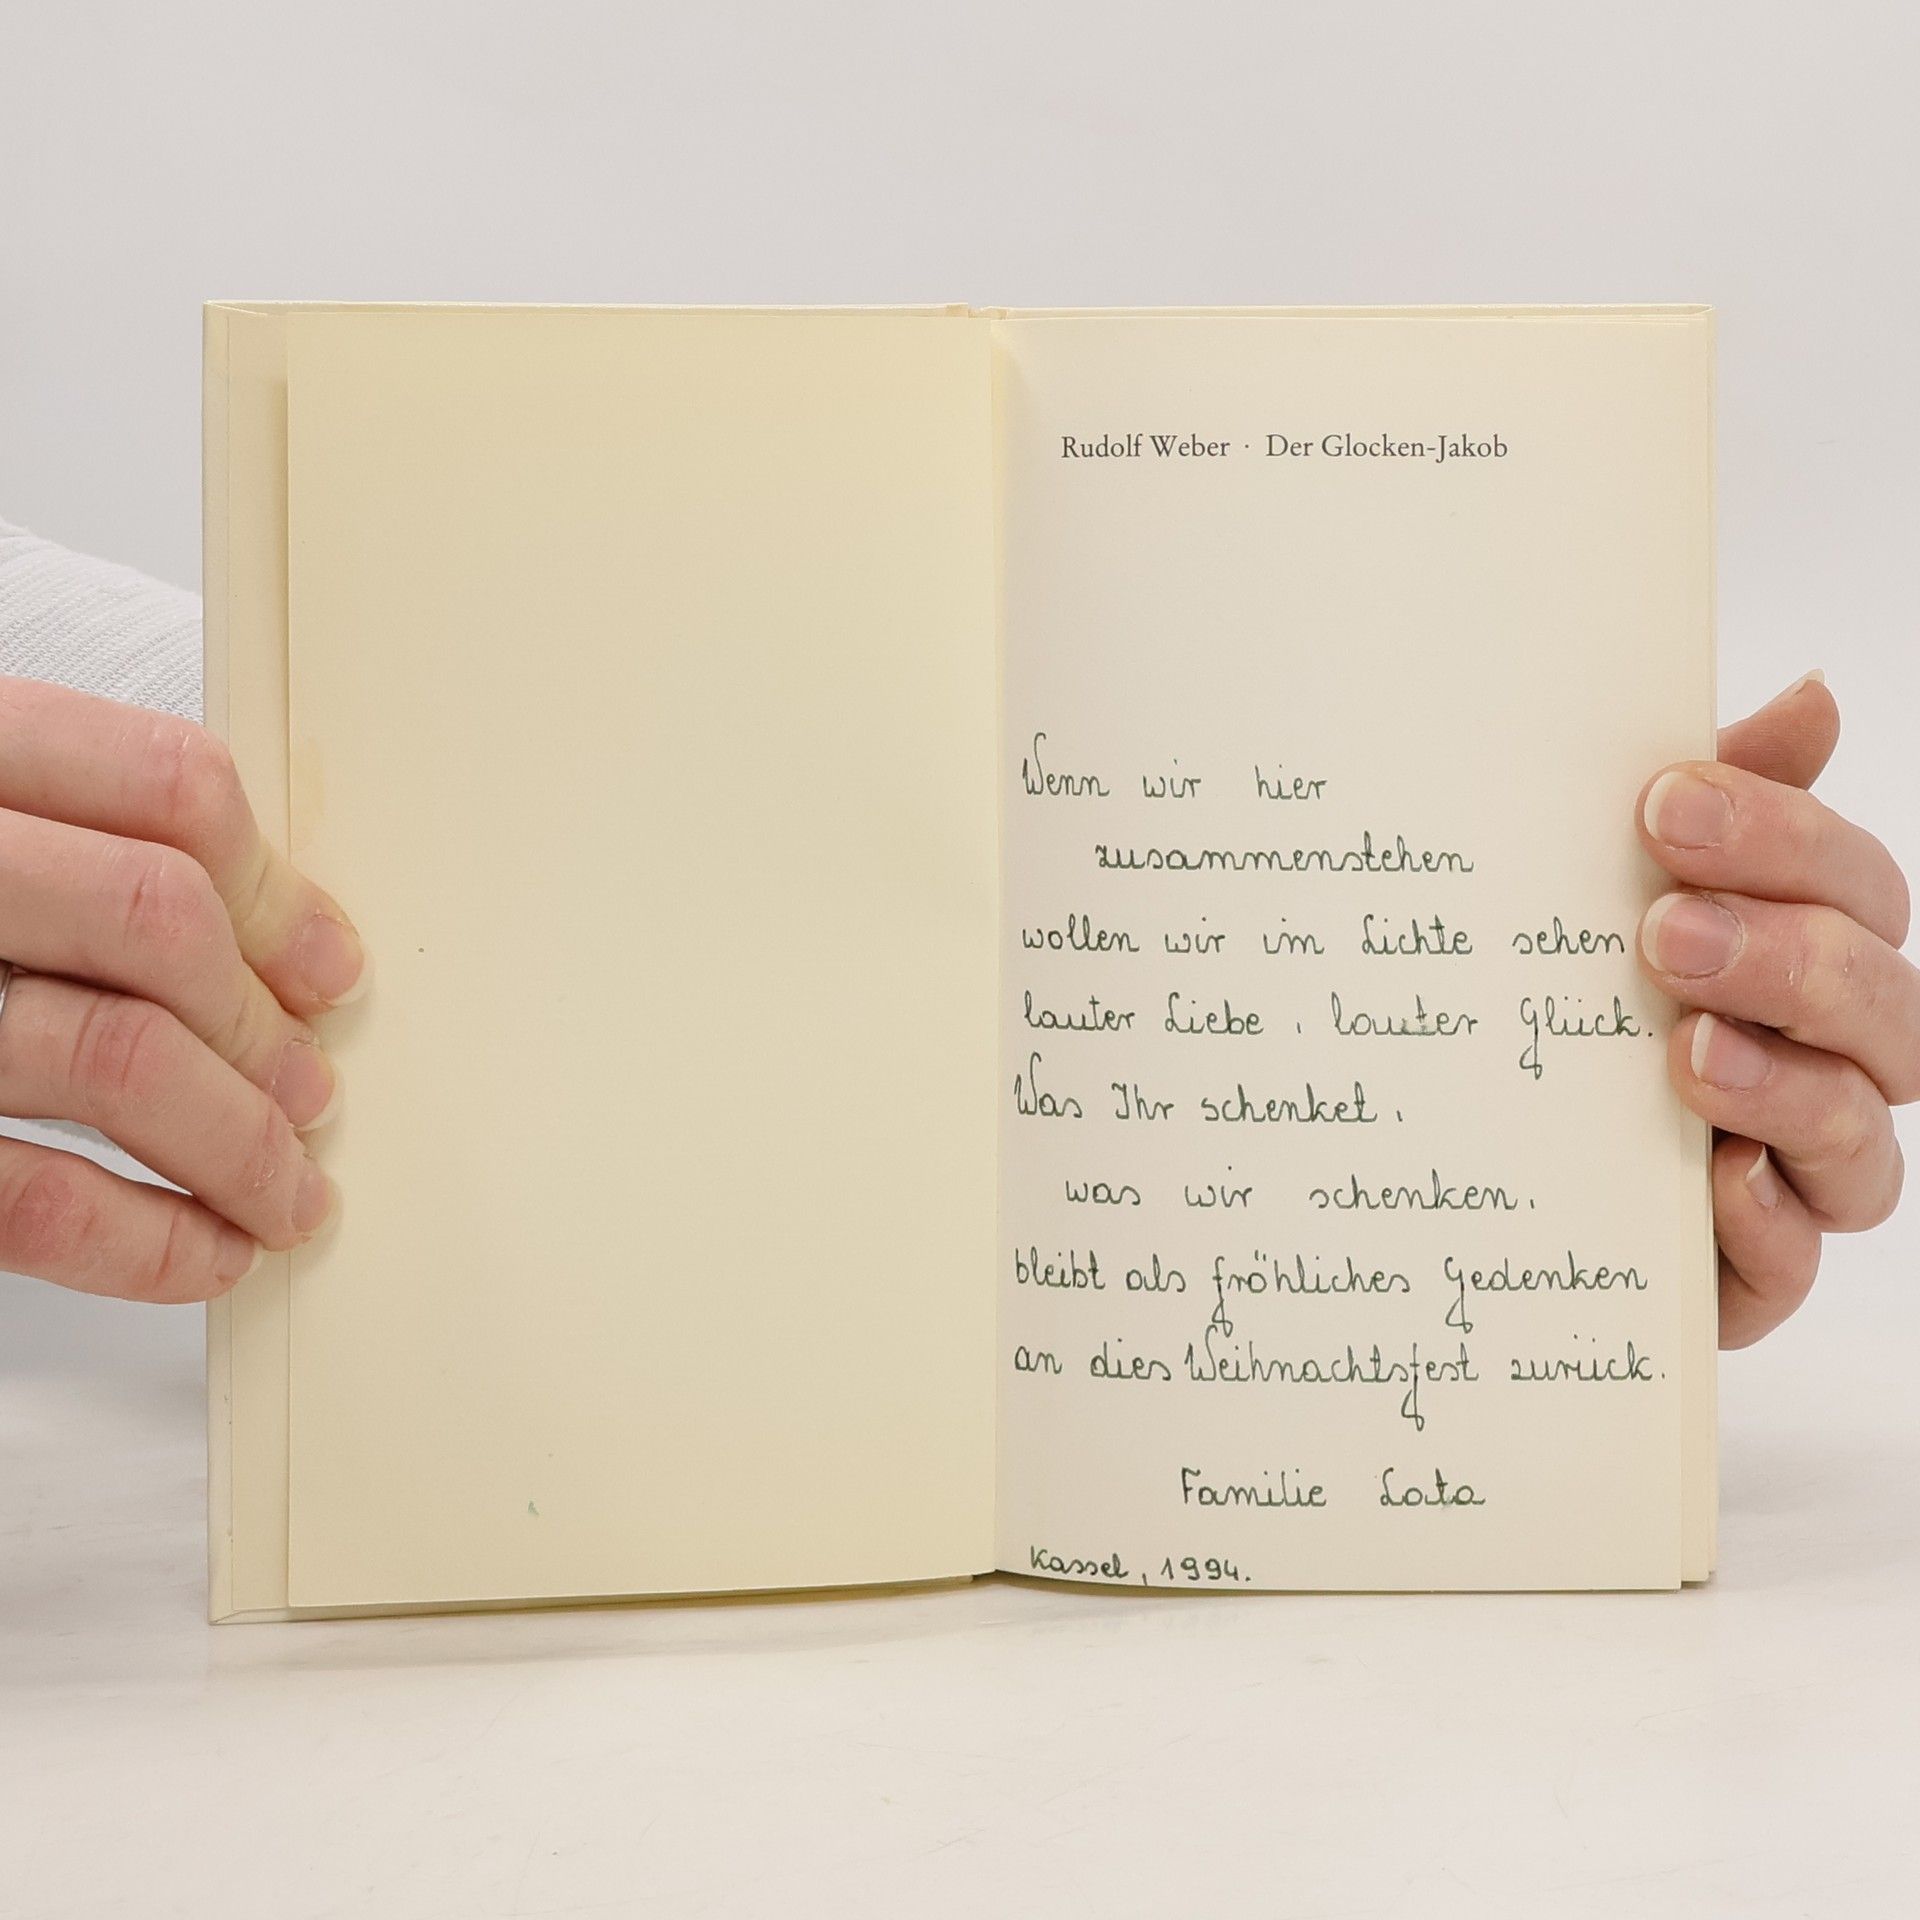 Rudolf Weber · Der Glocken-Jakob
Wenn wir hier
zusammenstehen
wollen wir im Lichte sehen
lauter Liebe, lauter Glück.
Was Ihr schenket,
was wir schenken,
bleibt als fröhliches Gedenken
an dies Weihnachtsfest zurück.
Familie Lata
Kassel, 1994.